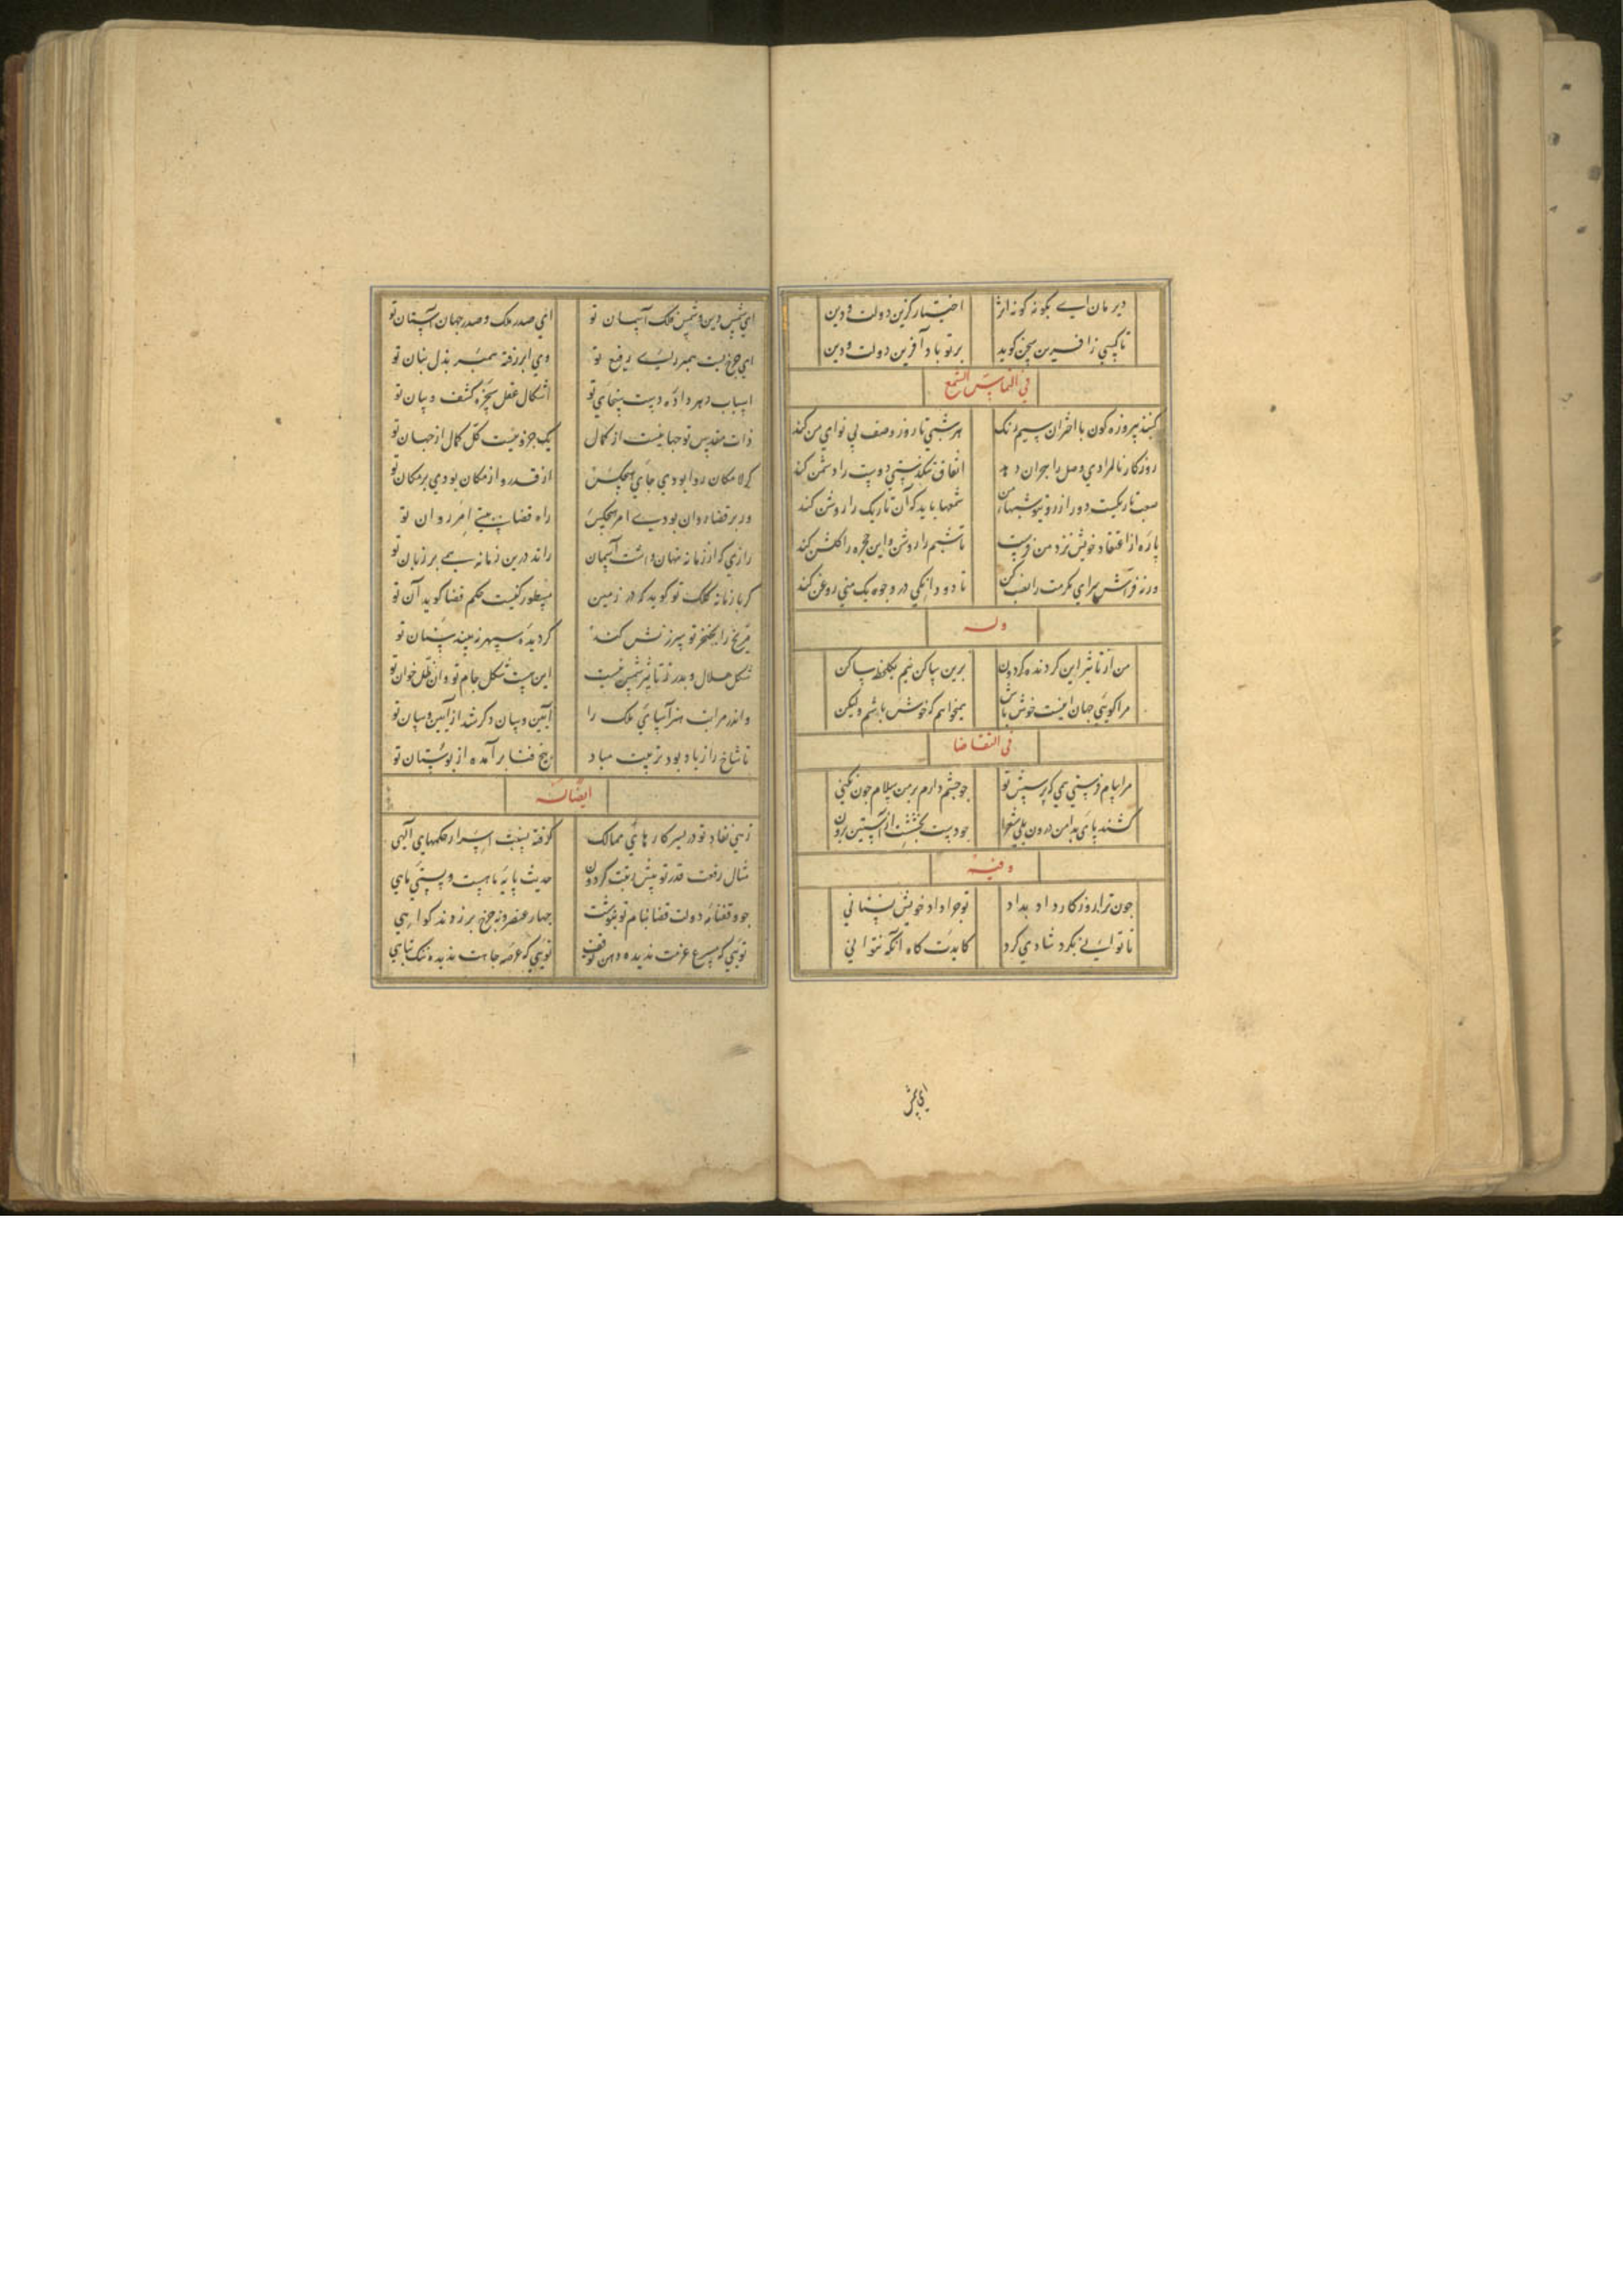 دیر مان ای بگونه گونه اثر اختیار گزین دولت و دین
تا کسی ز آفرین سخن گوید بر تو باد آفرین دولت و دین
فی التماس الشمع
گنبد پیروزه گون با اختران سیم رنگ هر شبی تا روز وصف بی نوای من کند
روزگار نامرادی وصل را هجران دهد اتفاق تنکدستی دوست را دشمن کند
صعب تاریکست و دور از روی تو شبهای من شمعها باید که آن تاریک را روشن کند
پاره از اعتقاد خویش نزد من فرست تا شبم را روشن و این حجره را گلشن کند
ورنه فراش سرای مکرمت را نصب کن تا دو دانگی در وجوه یک منی روغن کند
وله
من از تاثیر این گردنده گردون برین ساکن نیم یکلحظه ساکن
مرا گویی جهان اینست خوش باش همیخواهم که خوش باشم ولیکن
فی التقاضا
مرا پیام فرستی همی که پرسش تو چو چشم دارم بر من سلام چون نکنی
کشند پای بدامن درون بلی شعرا چو دست بخشش از آستین برون نکنی
وفیه
چون ترا روزگار داد بداد تو چرا داد خویش نستانی
ناتوانی بگرد شادی گرد کایدت گاه آنکه نتوانی
ای شمس
ای شمس دین و شمس فلک آسمان تو ای صدر ملک و صدر جهان آستان تو
ای چرخ پست همبر رای رفیع تو وی ابر زفت همبر بذل بنان تو
اسباب دهر داده دست سخای تو اشکال عقل سخره کشف و بیان تو
ذات مقدس تو جهانیست از کمال یک جزو نیست کل کمال از جهان تو
گر لامکان روا بودی جای هیچکس از قدر و از مکان بودی بر مکان تو
ور بر قضا روان بودی امر هیچکس راه قضا ببستی امر روان تو
رازی که از زمانه نهان داشت آسمان راند درین زمانه همی بر زبان تو
گر با زمانه کلک تو گوید که در زمین منظور کیست حکم قضا گوید آن تو
مریخ را بخنجر تو سرزنش کند گر دیده سپهر ببیند سنان تو
شکل هلال و بدر ز تاثیر شمس نیست این هست شکل جام تو و آن ظل خوان تو
واندر مراتب هنر آسیای ملک را آیین و سان دگر شد از آیین و سان تو
تا شاخ را ز باد بود تربیت مباد رنج فنا برآمده از بوستان تو
ایضا له
زهی نفاذ تو در سر کارهای ممالک گرفته نسبت اسرار حکمهای الهی
مثال رفعت قدر تو پیش رفعت گردون حدیث پایه ماهست و پستی ماهی
چو وقفنامه دولت قضا بنام تو بنوشت چهار عنصر و نه چرخ برزدند گواهی
توئی که مسرع عزمت ندیده وهن توقف توئی که عرصه جاهت ندیده ننگ تباهی